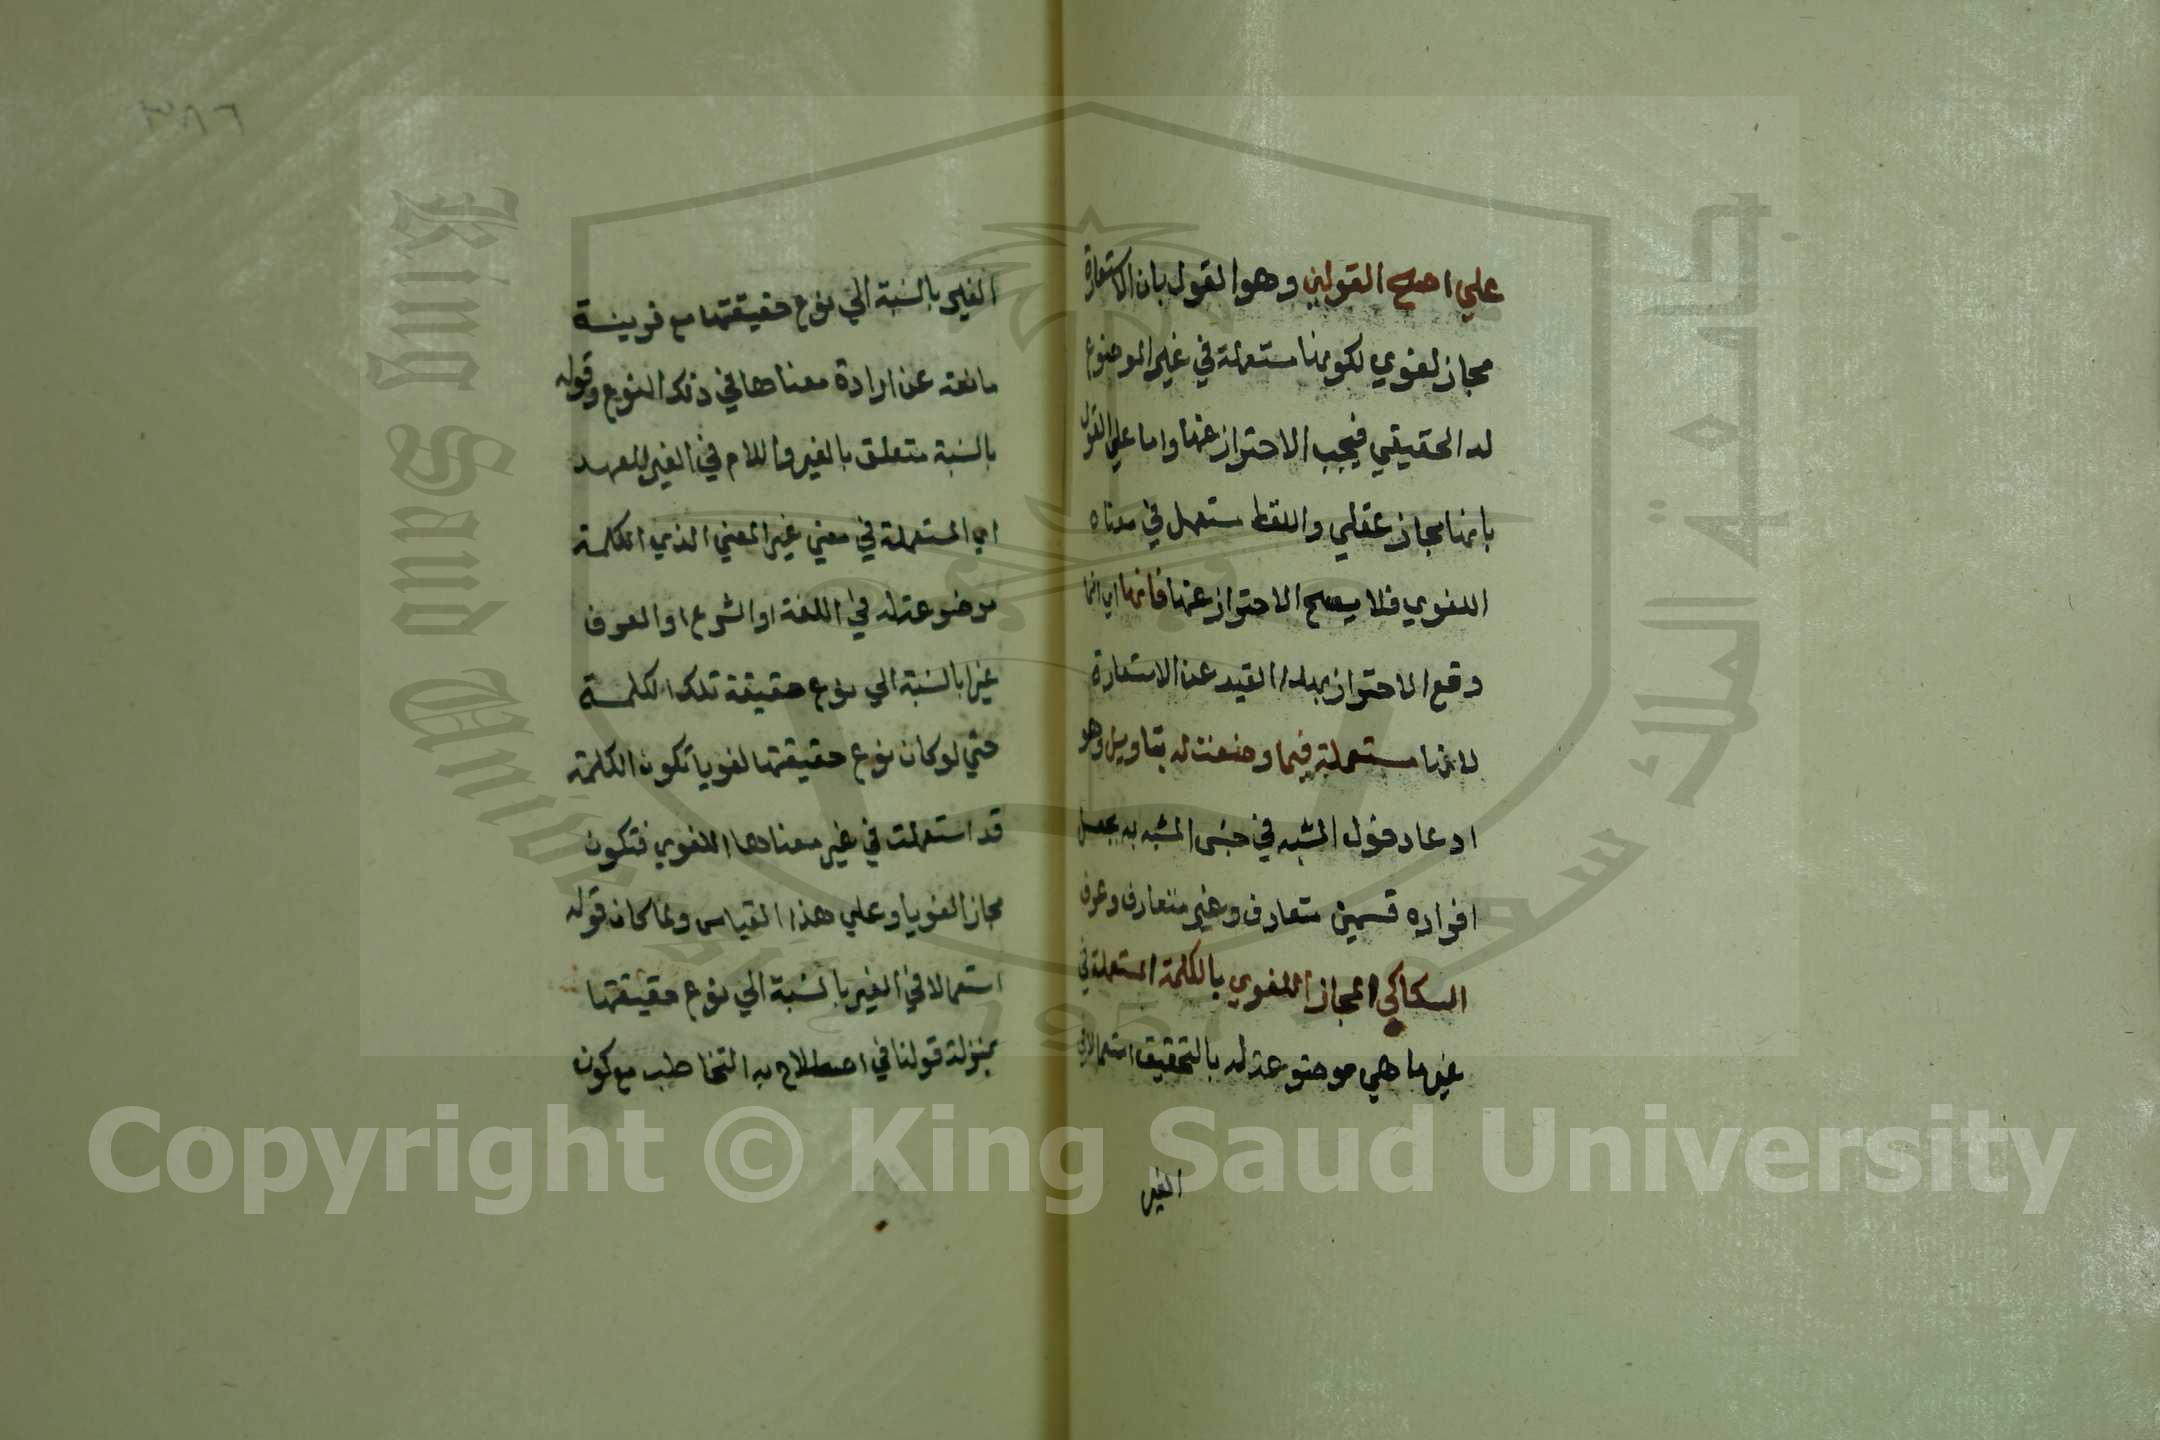 علي اصح القولين وهو القول بان الاستعارة
مجاز لغوي لكونها مستعملة في غير الموضوع
له الحقيقي فيجب الاحتراز عنها واما علي القول
بانها مجاز عقلي واللفظ مستعمل في معناه
اللغوي فلا يصح الاحتراز عنها فانها اي انما
وقع الاحتراز بهذا القيد عن الاستعارة
لانها مستعملة فيما وضعت له بتاويل وهو
ادعا دخول المشبه في جنس المشبه به بجعل
افراده قسمين متعارف وغير متعارف وعرف
السكاكي المجاز اللغوي بالكلمة المستعملة في
غير ما هي موضوعة له بالتحقيق استعمالا في
الغير
٣٨٦
الغير بالنسبة الي نوع حقيقتها مع قرينة
مانعة عن ارادة معناها في ذلك النوع وقوله
بالنسبة متعلق بالغير واللام في الغير للعهد
اي المستعملة في معني غير المعني الذي الكلمة
موضوعة له في اللغة او الشرع او العرف
غيرا بالنسبة الي نوع حقيقة تلك الكلمة
حتي لو كان نوع حقيقتها لغويا تكون الكلمة
قد استعملت في غير معناها اللغوي فتكون
مجازا لغويا وعلي هذا القياس ولما كان قوله
استعمالا في الغير بالنسبة الي نوع حقيقتها
بمنزلة قولنا في اصطلاح به التخاطب مع كون
King Saud University
جامعة الملك سعود
1957
Copyright © King Saud University